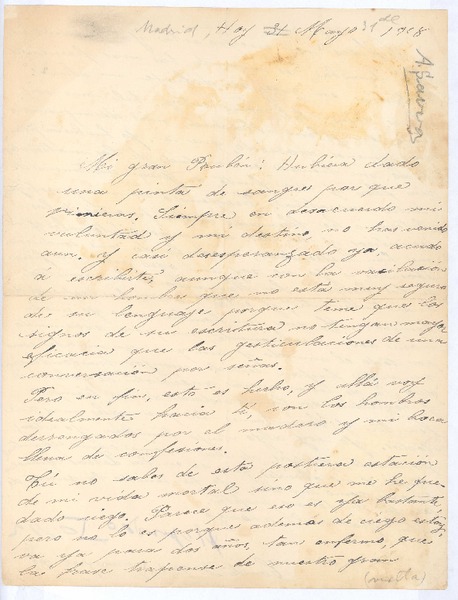 Madrid, Hoy 31 Mayo de 1918
A. Parra
Mi gran Rubén: Hubiera dado
una pinta de sangre por que
vinieras. Siempre en desacuerdo mi
voluntad y mi destino no has venido
aun. Y casi desesperanzado ya, acudo
á escribirte, aunque con la vacilación
de un hombre que no está muy seguro
de su lenguaje porque teme que los
signos de su escritura no tengan mayor
eficacia que las gesticulaciones de una
conversación por señas.
Pero en fin, está es hecho, y allá voy
idealmente hacia ti, con los hombros
derrengados por el madero y mi boca
llena de confesiones.
Tu no sabes de esta postrera estación
de mi vida mortal sino que me he que
dado ciego. Parece que eso es ya bastante,
pero no lo es porque ademas de ciego estoy,
va ya para dos años, tan enfermo, que
la frase trapense de nuestro gran
(vuelta)